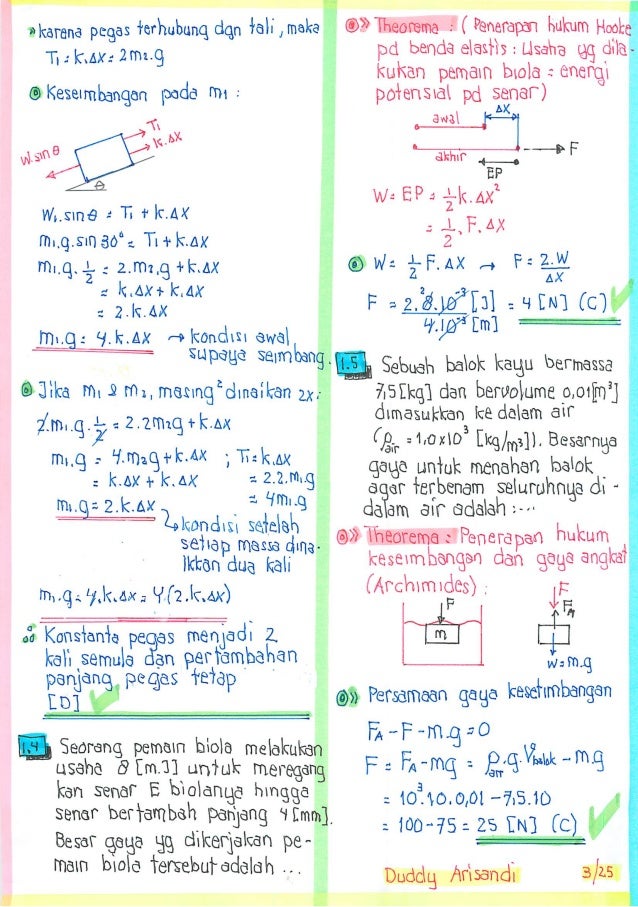 » karena pegas terhubung dgn tali, maka
T₁ = k.Δx = 2m₂.g
Keseimbangan pada m₁ :
T₁
k.Δx
W.sin θ
θ
W₁.sin θ = T₁ + k.Δx
m₁.g.sin 30° = T₁ + k.Δx
m₁.g.½ = 2.m₂.g + k.Δx
= k.Δx + k.Δx
= 2.k.Δx
m₁.g = 4.k.Δx → kondisi awal
supaya seimbang.
Jika m₁ & m₂, masing² dinaikan 2x:
2.m₁.g.½ = 2.2m₂g + k.Δx
m₁.g = 4.m₂g + k.Δx ; T₁ = k.Δx
= k.Δx + k.Δx = 2.2.m₁.g
m₁.g = 2.k.Δx = 4m₁g
kondisi setelah
setiap massa dina-
ikkan dua kali
m₁.g = 4.k.Δx = 4.(2.k.Δx)
∴ Konstanta pegas menjadi 2
kali semula dan pertambahan
panjang pegas tetap
[D]
1.4 Seorang pemain biola melakukan
usaha 8 [m.J] untuk meregang
kan senar E biolanya hingga
senar bertambah panjang 4 [mm].
Besar gaya yg dikerjakan pe-
main biola tersebut adalah ...
» Theorema : ( Penerapan hukum Hooke
pd benda elastis : Usaha yg dila-
kukan pemain biola = energi
potensial pd senar)
awal
Δx
akhir
F
EP
W = EP = ½ k.Δx²
= ½.F.Δx
W = ½ F.Δx → F = 2.W/Δx
F = 2.8.10⁻³ [J] / 4.10⁻³ [m] = 4 [N] (C)
1.5 Sebuah balok kayu bermassa
7,5 [kg] dan bervolume 0,01[m³]
dimasukkan ke dalam air
(ρair = 1,0x10³ [kg/m³]). Besarnya
gaya untuk menahan balok
agar terbenam seluruhnya di-
dalam air adalah :...
» Theorema : Penerapan hukum
keseimbangan dan gaya angkat
(Archimides) :
F
m
F
FA
W = m.g
» Persamaan gaya kesetimbangan
FA - F - m.g = 0
F = FA - mg = ρair.g.Vbalok - mg
= 10³.10.0,01 - 7,5.10
= 100 - 75 = 25 [N] (C)
Duddy Arisandi
3/25